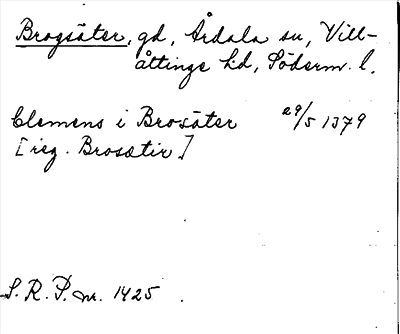 Brogsäter, gd, Årdala sn, Vill-
åttinge hd, Söderm. l.
Clemens i Brosäter 29/5 1379
[reg. Brosætir]
S. R. P. nr. 1425.